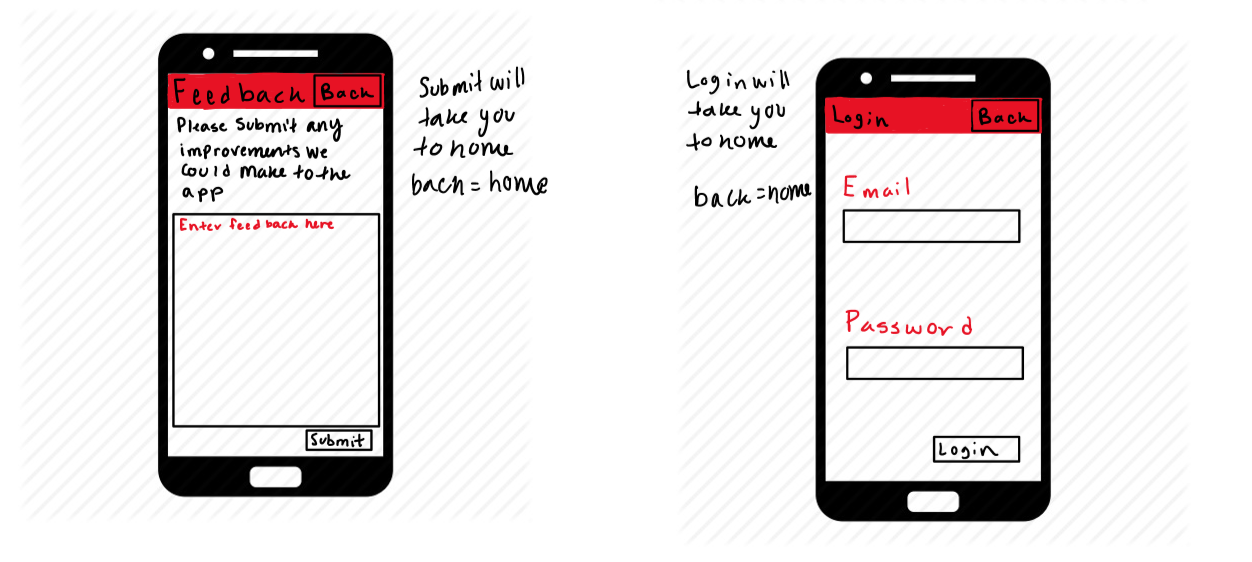 Feedback Back
Please Submit any
improvements we
could make to the
app
Enter feedback here
Submit
Submit will
take you
to home
back = home
Login will
take you
to home
back = home
Login Back
Email
Password
Login